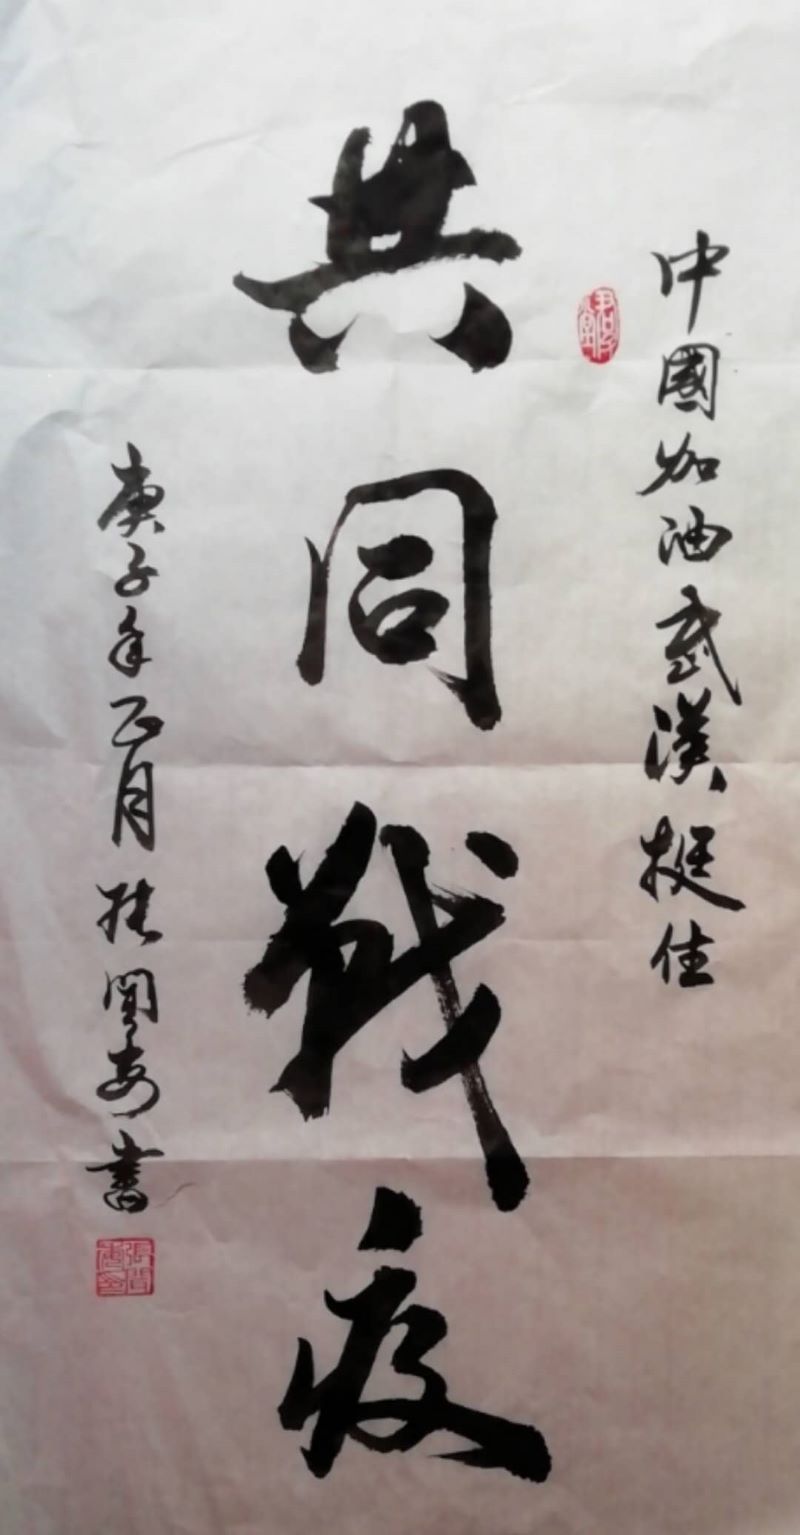 中國加油武漢挺住
共同戰疫
庚子年正月張聞安書